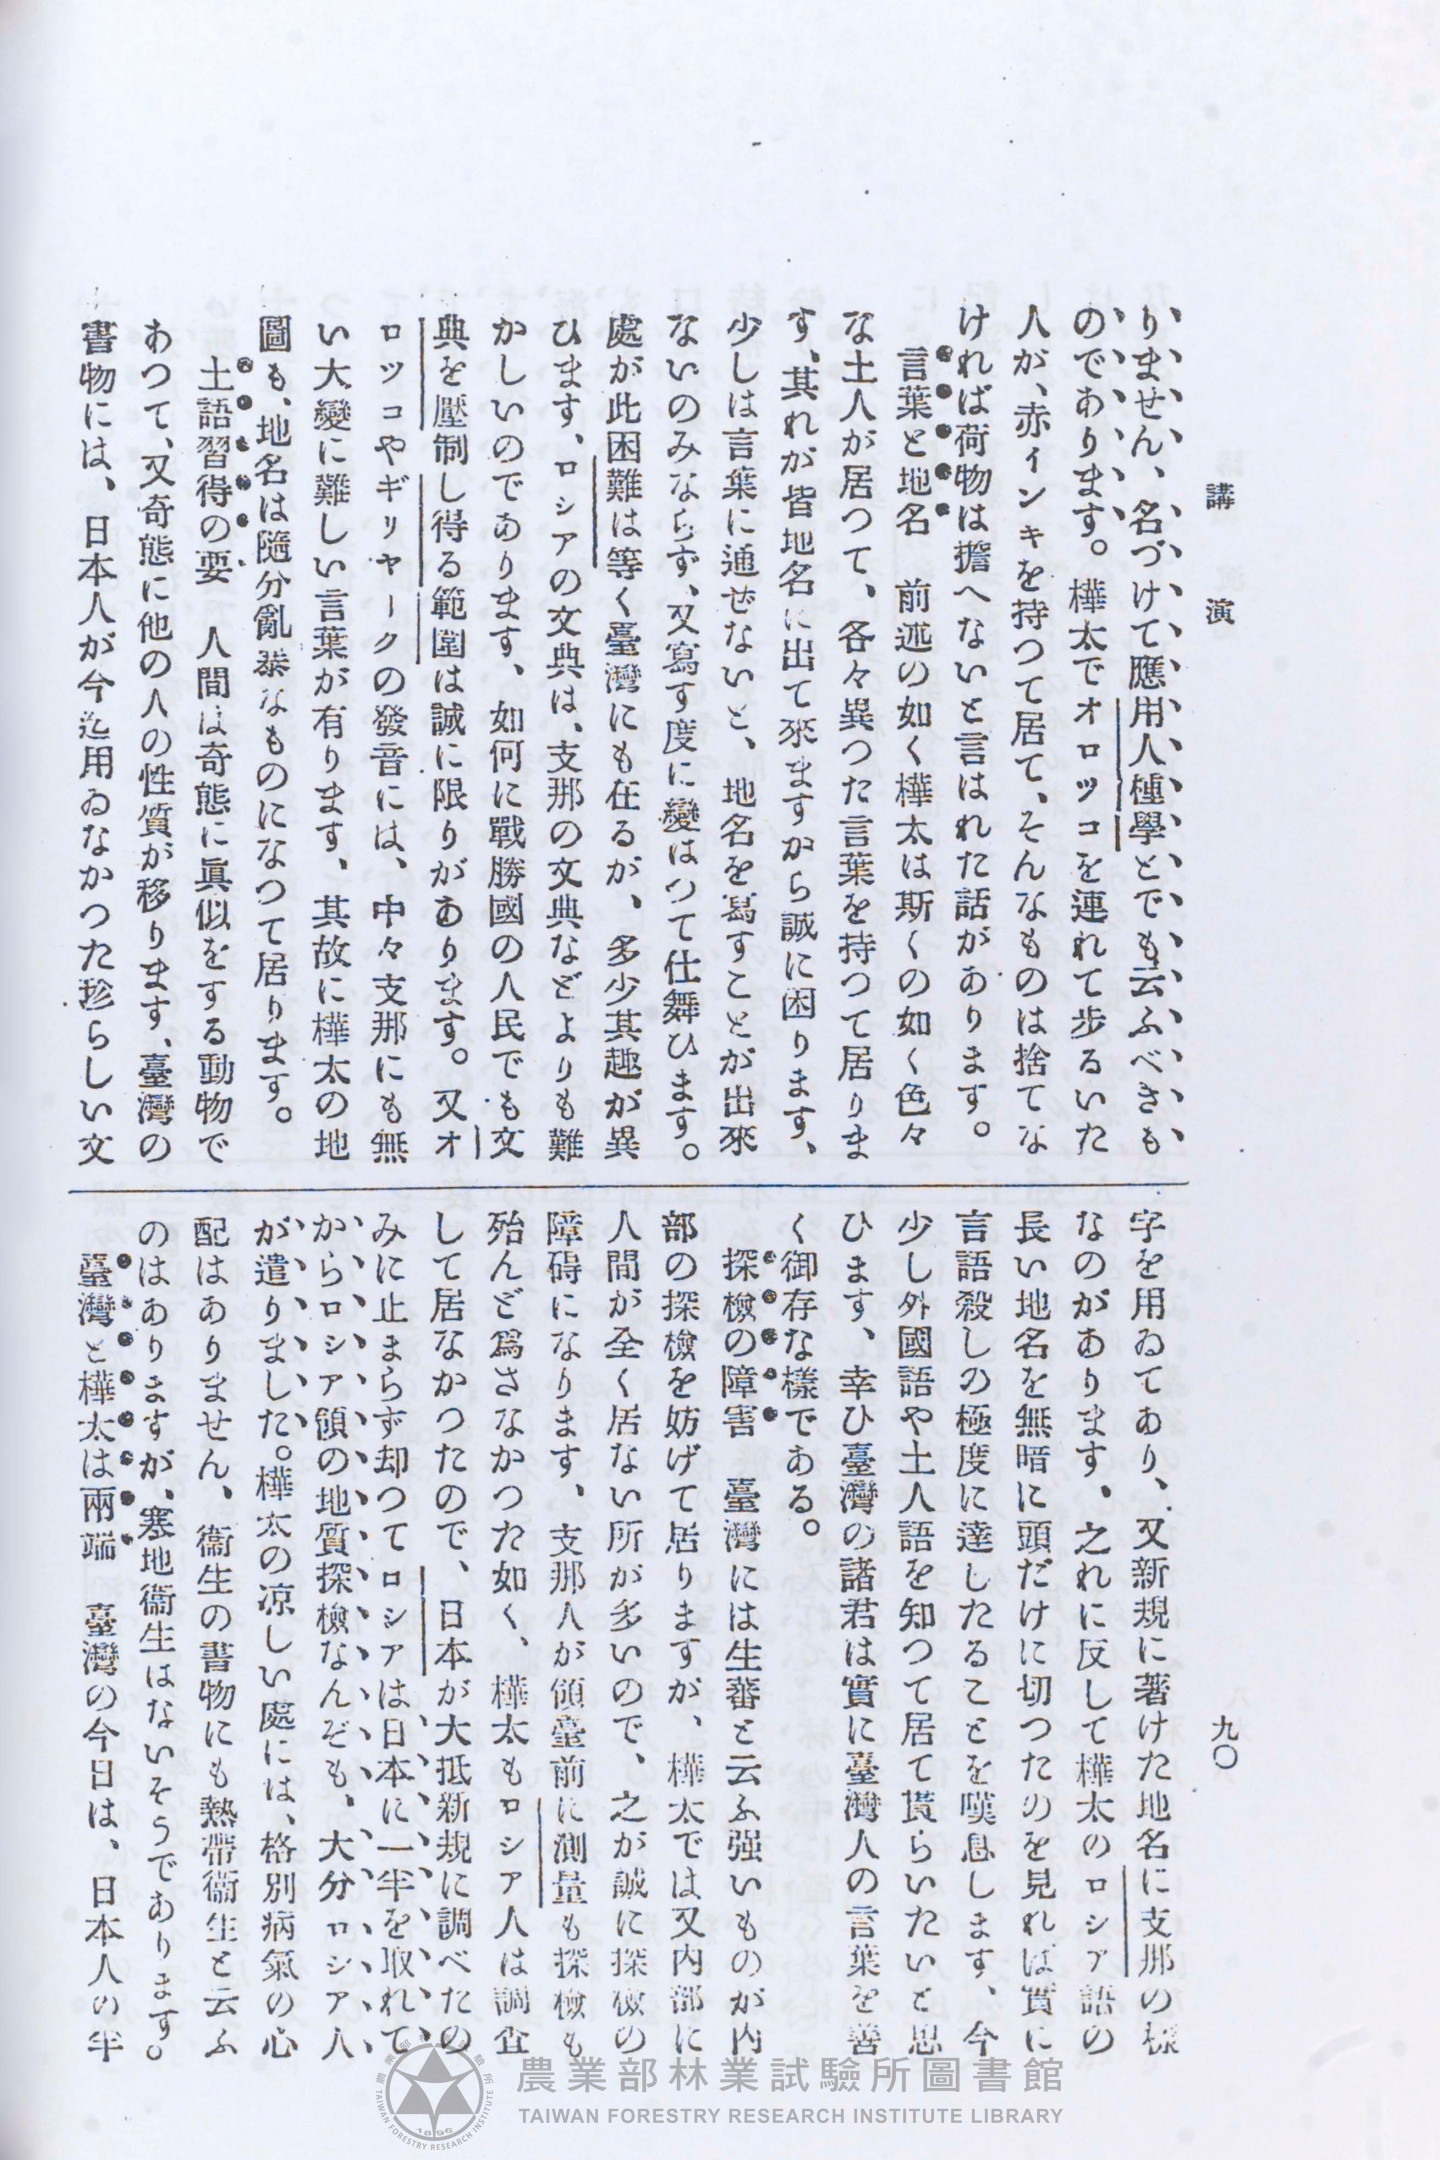 講演
九〇
りません、名づけて應用人種學とでも云ふべきも
のであります。樺太でオロッコを連れて歩るいた
人が、赤インキを持つて居て、そんなものは捨てな
ければ荷物は擔へないと言はれた話があります。
言葉と地名　前述の如く樺太は斯くの如く色々
な土人が居つて、各々異つた言葉を持つて居りま
す、其れが皆地名に出て來ますから誠に困ります、
少しは言葉に通ぜないと、地名を寫すことが出來
ないのみならず、又寫す度に變はつて仕舞ひます。
處が此困難は等く臺灣にも在るが、多少其趣が異
ひます、ロシアの文典は、支那の文典などよりも難
かしいのであります、如何に戰勝國の人民でも文
典を壓制し得る範圍は誠に限りがあります。又オ
ロッコやギリヤークの發音には、中々支那にも無
い大變に難しい言葉が有ります、其故に樺太の地
圖も、地名は隨分亂暴なものになつて居ります。
土語習得の要　人間は奇態に眞似をする動物で
あつて、又奇態に他の人の性質が移ります、臺灣の
書物には、日本人が今迄用ゐなかつた珍らしい文
字を用ゐてあり、又新規に著けた地名に支那の樣
なのがあります、之れに反して樺太のロシア語の
長い地名を無暗に頭だけに切つたのを見れば實に
言語殺しの極度に達したることを嘆息します、今
少し外國語や土人語を知つて居て貰らいたいと思
ひます、幸ひ臺灣の諸君は實に臺灣人の言葉を善
く御存な樣である。
探檢の障害　臺灣には生蕃と云ふ强いものが內
部の探檢を妨げて居りますが、樺太では又內部に
人間が全く居ない所が多いので、之が誠に探檢の
障碍になります、支那人が領臺前に測量も探檢も
殆んど爲さなかつた如く、樺太もロシア人は調査
して居なかつたので、日本が大抵新規に調べたの
みに止まらず却つてロシアは日本に一半を取れて
からロシア領の地質探檢なんぞも、大分ロシア人
が遣りました。樺太の凉しい處には、格別病氣の心
配はありません、衞生の書物にも熱帶衞生と云ふ
のはありますが、寒地衞生はないそうであります。
臺灣と樺太は兩端　臺灣の今日は、日本人の半
農業部林業試驗所圖書館
TAIWAN FORESTRY RESEARCH INSTITUTE LIBRARY
農業部林業試驗所
TAIWAN FORESTRY RESEARCH INSTITUTE
1896